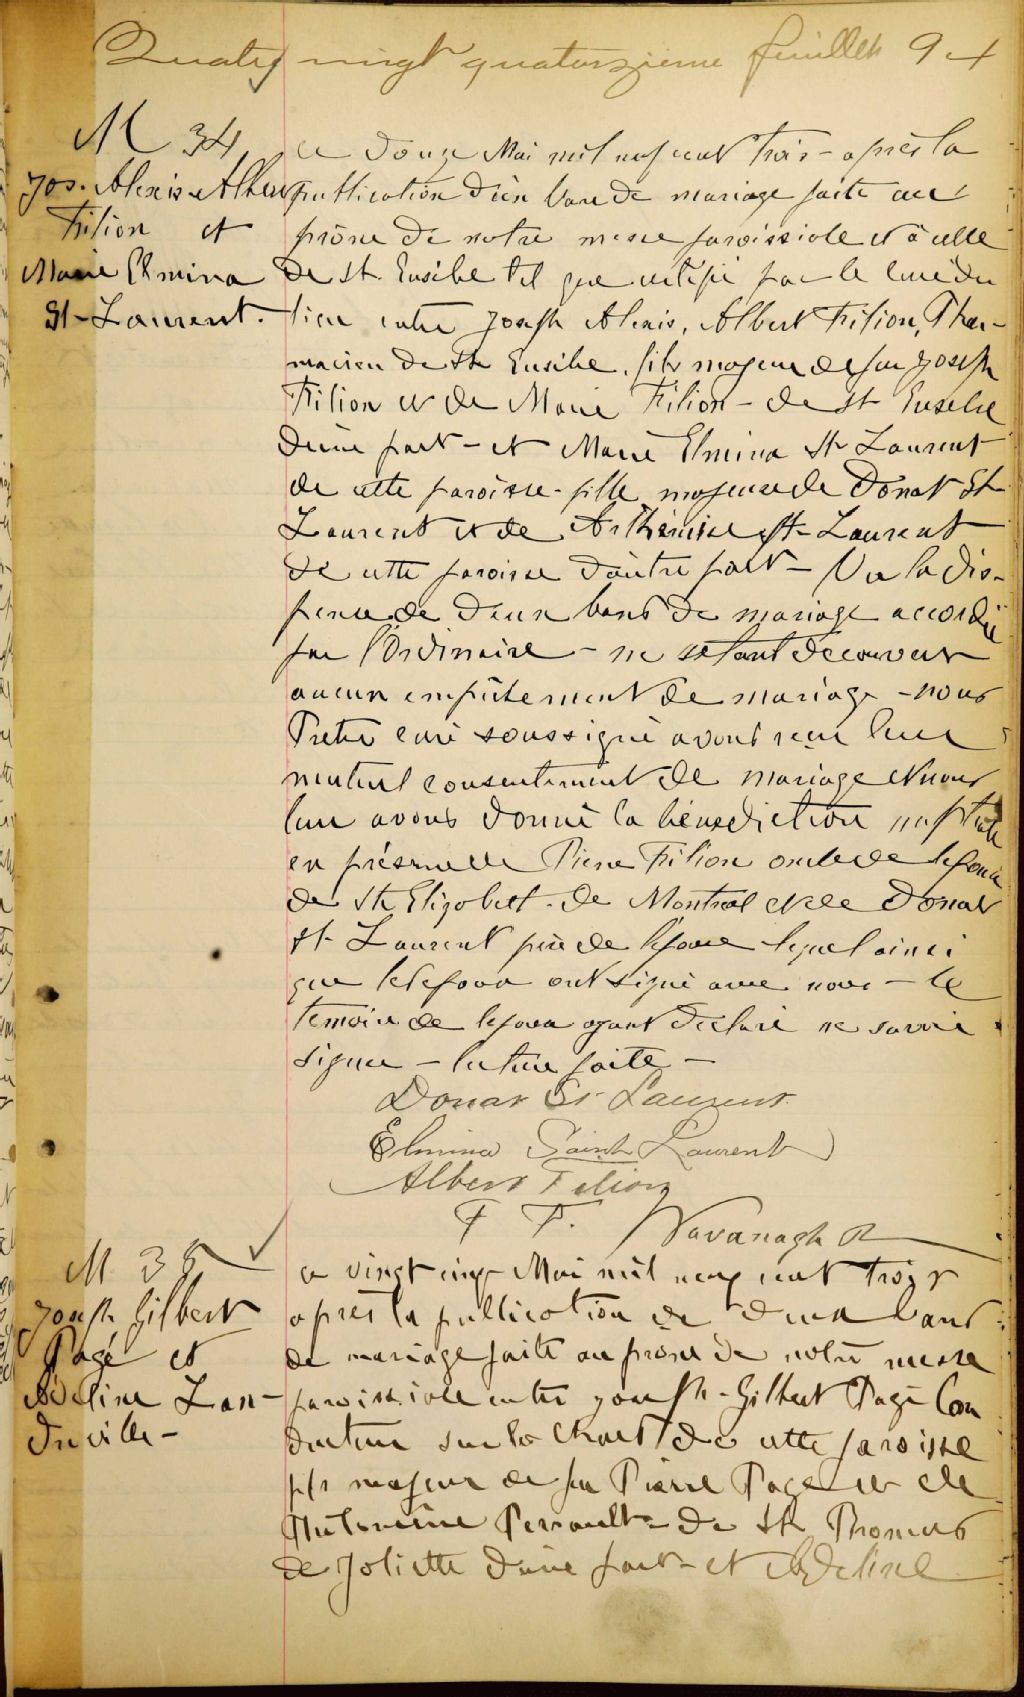 Quatre vingt quatorzieme feuillet 94
M 34
Jos. Alexis Albert
Filion et
Marie Elmina
St-Laurent.
Ce douze Mai mil neuf cent trois - après la
publication d'un ban de mariage faite au
prône de notre messe paroissiale et à celle
de St Eusèbe tel que certifié par le curé du
lieu entre Joseph Alexis, Albert Filion, Phar-
macien de St Eusèbe, fils majeur de feu Joseph
Filion et de Marie Filion - de St Eusèbe
d'une part - et Marie Elmina St Laurent
de cette paroisse - fille majeure de Donat St-
Laurent et de Arthémise St-Laurent
de cette paroisse d'autre part - Vu la dis-
pense de deux bans de mariage accordée
par l'Ordinaire - ne s'étant découvert
aucun empêchement de mariage - nous
Prêtre curé soussigné avons reçu leur
mutuel consentement de mariage et nous
leur avons donné la bénédiction nuptiale
en présence de Pierre Filion oncle de l'époux
de Ste Elizabeth - de Montréal et de Donat
St-Laurent père de l'épouse lequel ainsi
que les époux ont signé avec nous - le
témoin de l'époux ayant déclaré ne savoir
signer - lecture faite -
Donat St Laurent
Elmina Saint Laurent
Albert Filion
F. Kavanagh
M 35
Joseph Gilbert
Pagé et
Adeline Lan-
dreville -
Ce vingt cinq Mai mil neuf cent trois
après la publication de deux bans
de mariage faite au prône de notre messe
paroissiale entre Joseph - Gilbert Pagé Con
ducteur sur les chars de cette paroisse
fils majeur de feu Pierre Pagé et de
Philomène Perrault - de St Thomas
de Joliette d'une part - et Adeline